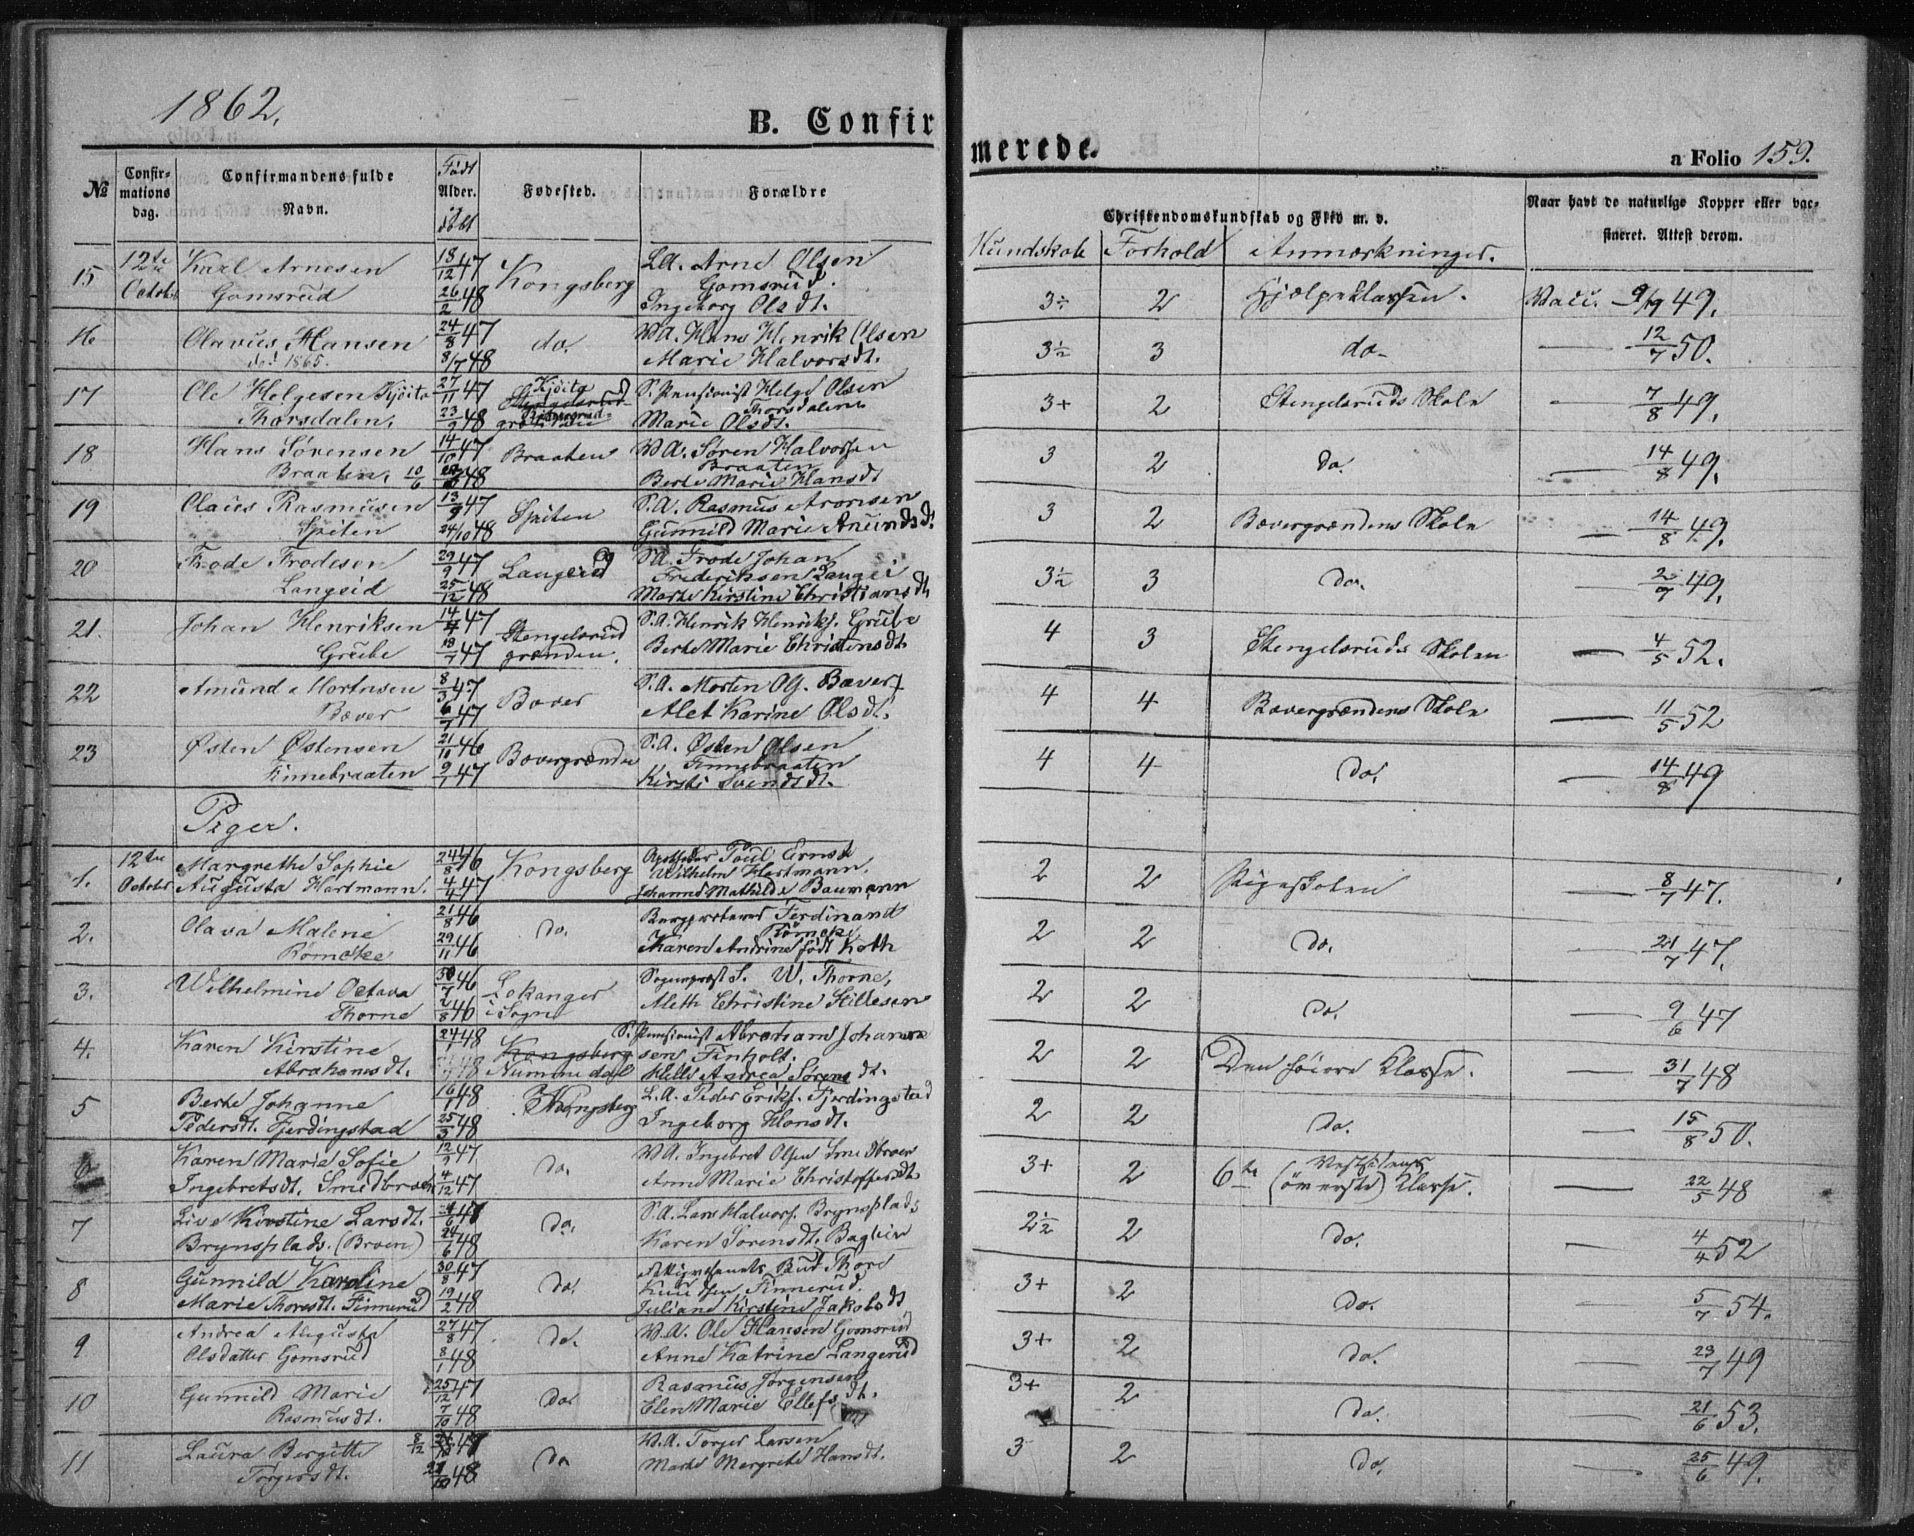 1862.
B. Confirmerede.
a Folio 159.
№ Confirmations dag. Confirmandens fulde Navn. Født Alder. døbt Fødested. Forældre Christendomskundskab og Flid m. v. Naar havt de naturlige Kopper eller vaccineret. Attest derom.
Kundskab Forhold Anmærkninger.
15 12te October Karl Arnesen Gomsrud 18/12 47 26/2 48 Kongsberg L.A. Arne Olsen Gomsrud. Ingeborg Olsdt. 3÷ 2 Hjælpeklassen. Vacc. 9/9 49.
16 Olavus Hansen død 1865. 24/8 47 8/7 48 do. V.A. Hans Henrik Olsen Marie Halvorsdt. 3½ 3 do. — 12/7 50.
17 Ole Helgesen Kjöita Thorsdalen. 27/11 47 23/9 48 Kjöita S. Pensionist Helge Olsen Thorsdalen Marie Olsdt. 3+ 2 Stengelsruds Skole — 7/8 49.
18 Hans Sörensen Braaten. 10/6 14/10 47 48 Braaten V.A. Sören Halvorsen Braaten Berte Marie Hansdt 3 2 do. — 14/8 49.
19 Claus Rasmusen Spiten 13/9 47 24/10 48 Spiten S.A. Rasmus Aronsen Gunnild Marie Anundsdt. 3 2 Bævergrændens Skole — 14/8 49.
20 Frode Frodesen Langeid 29/9 47 25/12 48 Langeid S.A. Frode Johan Frederiksen Langei Marte Kirstine Christiansdt. 3½ 3 do. — 2/7 49.
21. Johan Henriksen Grube 14/4 47 18/7 47 Stengelsrud grænden. S.A. Henrik Henriks. Grube Berte Marie Christensdt. 4 3 Stengelsruds Skolen — 4/5 52.
22 Amund Mortensen Bæver 8/3 47 6/7 47 Bæver S.A. Morten Og. Bæver Alet Karine Olsdt. 4 4 Bævergrændens Skole — 11/5 52
23 Østen Østensen Finnebraaten 21/10 46 9/7 47 Bævergrænden S.A. Østen Olsen Finnebraaten Kirsti Svendsdt. 4 4 do. — 14/8 49
Piger.
1. 12te October Margrethe Sophie Augusta Hartmann. 24/8 46 4/4 47 Kongsberg Apotheker Poul Ernst Wilhelm Hartmann. Johanne Mathilde Baumann 2 2 Pigeskolen — 8/7 47.
2. Olava Malene Römcke 21/8 46 29/11 46 do. Ferdinand Römcke Karen Andrine født Koth 2 2 do. — 21/7 47.
3. Wilhelmine Octava Thorne 30/7 46 2/8 46 Lekanger i Sogn Sogneprest S. W. Thorne, Aleth Christine Stillesen 2 2 do. — 9/6 47
4. Karen Kirstine Abrahamsdt. 48 Kongsberg Nummedal S. Pensionist Abraham Johannesen Finholt. Helle Andrea Sörensdt. 2 2 Den høiere Klasse. — 31/7 48
5 Berte Johanne Pedersdt. Fjerdingstad 16/1 48 25/3 48 Kongsberg L.A. Peder Eriks. Fjerdingstad Ingeborg Hansdt. 2 2 do. — 15/8 50.
6 Karen Marie Sofie Ingebretsdt. Smedbroen 12/9 47 4/12 47 do. V.A. Ingebret Olsen Smedbroen Anne Marie Christoffersdt 3+ 2 6te (överste) Klasse. — 22/5 48
7 Live Kirstine Larsdt. Brynsplads. (Broen) 47 24/6 48 do. S.A. Lars Halvors. Brynsplads Karen Sorensdt. Baglien 2½ 2 do. — 4/4 52
8 Gunnild Karoline Marie Thoresdt. Finnerud 30/8 47 19/2 48 do. Bud Thore Knudsen Finnerud. Juliane Kirstine Jakobsdt 3+ 2 do. — 5/7 54.
9 Andrea Augusta Olsdatter Gomsrud 27/8 47 8/1 48 do. V.A. Ole Hansen Gomsrud Anne Katrine Langerud 3+ 2 do. — 23/7 49
10 Gunnild Marie Rasmusdt. 25/12 47 7/10 48 do. Rasmus Jorgensen Elen Marie Ellefsdt. 3+ 2 do. — 21/6 53.
11 Laura Bergitte Torgersdt. 8/12 47 48 do V.A. Torger Larsen Marte Mergrete Hansdt. 3 2 do. — 25/6 49.